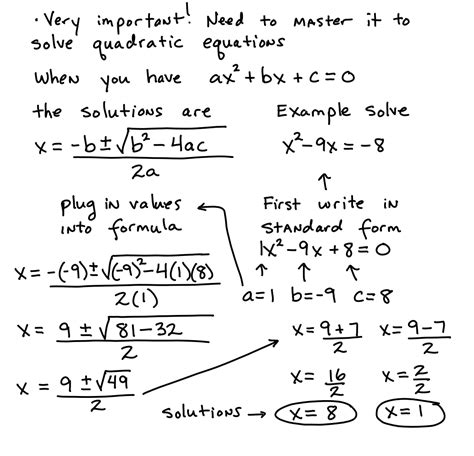 · Very important! Need to master it to
solve quadratic equations
When you have ax² + bx + c = 0
the solutions are
x = -b ± √b² - 4ac / 2a
Example solve
x² - 9x = -8
↑
First write in
standard form
1x² - 9x + 8 = 0
↑ ↑ ↑
a=1 b=-9 c=8
plug in values
into formula
x = -(-9) ± √(-9)² - 4(1)(8) / 2(1)
x = 9 ± √81 - 32 / 2
x = 9 ± √49 / 2
x = 9+7 / 2 x = 9-7 / 2
x = 16/2 x = 2/2
solutions → x = 8 x = 1